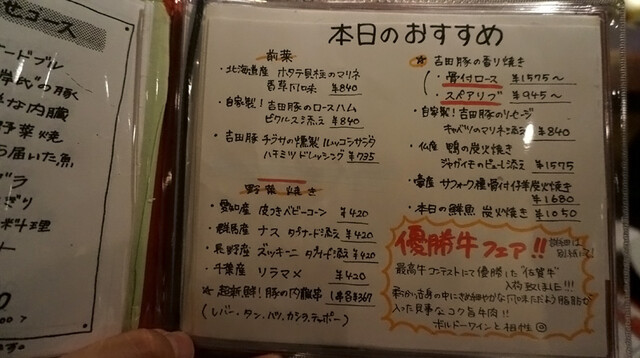 せコース
ードブル
豚
な内臓
野菜焼
ら届いた魚
料理
本日のおすすめ
前菜
・北海道産 ホタテ貝柱のマリネ
香草風味 ¥840
・自家製!吉田豚のロースハム
ピクルス添え ¥840
・吉田豚 チラサの燻製 ルッコラサラダ
ハチミツドレッシング ¥735
野菜焼き
・愛知産 皮つきベビーコーン ¥420
・群馬産 ナス タプナード添え ¥420
・長野産 ズッキーニ タプナード添え ¥420
・千葉産 ソラマメ ¥420
☆超新鮮!豚の内臓串 1本¥367
(レバー、タン、ハツ、カシラ、テッポー)
☆吉田豚の香り焼き
・骨付ロース ¥1575〜
・スペアリブ ¥945〜
・自家製!吉田豚のソーセージ
キャベツのマリネ添え ¥840
・仏産 鴨の炭火焼き
ジャガイモのピューレ添え ¥1575
・豪産 サフォーク種骨付仔羊炭火焼き
¥1680
・本日の鮮魚 炭火焼き ¥1050
優勝牛フェア!! 詳細は
別紙にて!
最高牛コンテストにて優勝した"佐賀牛"
入荷致しました!!!
柔らかい赤身の中にきめ細やかな風味ただよう脂肪が
入った見事なコク旨牛肉!!
ボルドーワインと相性◎